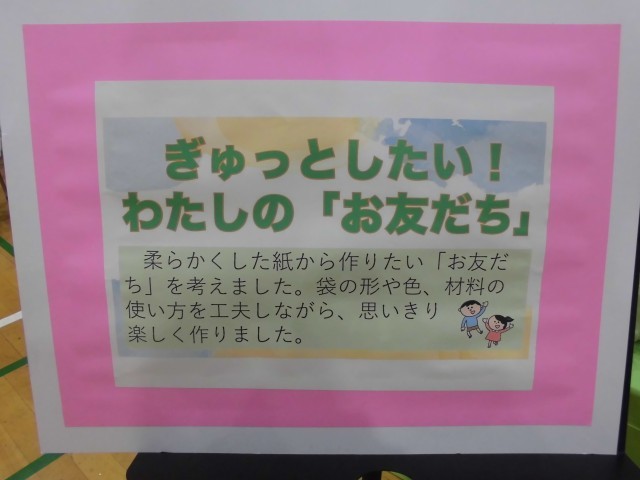 ぎゅっとしたい！
わたしの「お友だち」
柔らかくした紙から作りたい「お友だ
ち」を考えました。袋の形や色、材料の
使い方を工夫しながら、思いきり
楽しく作りました。